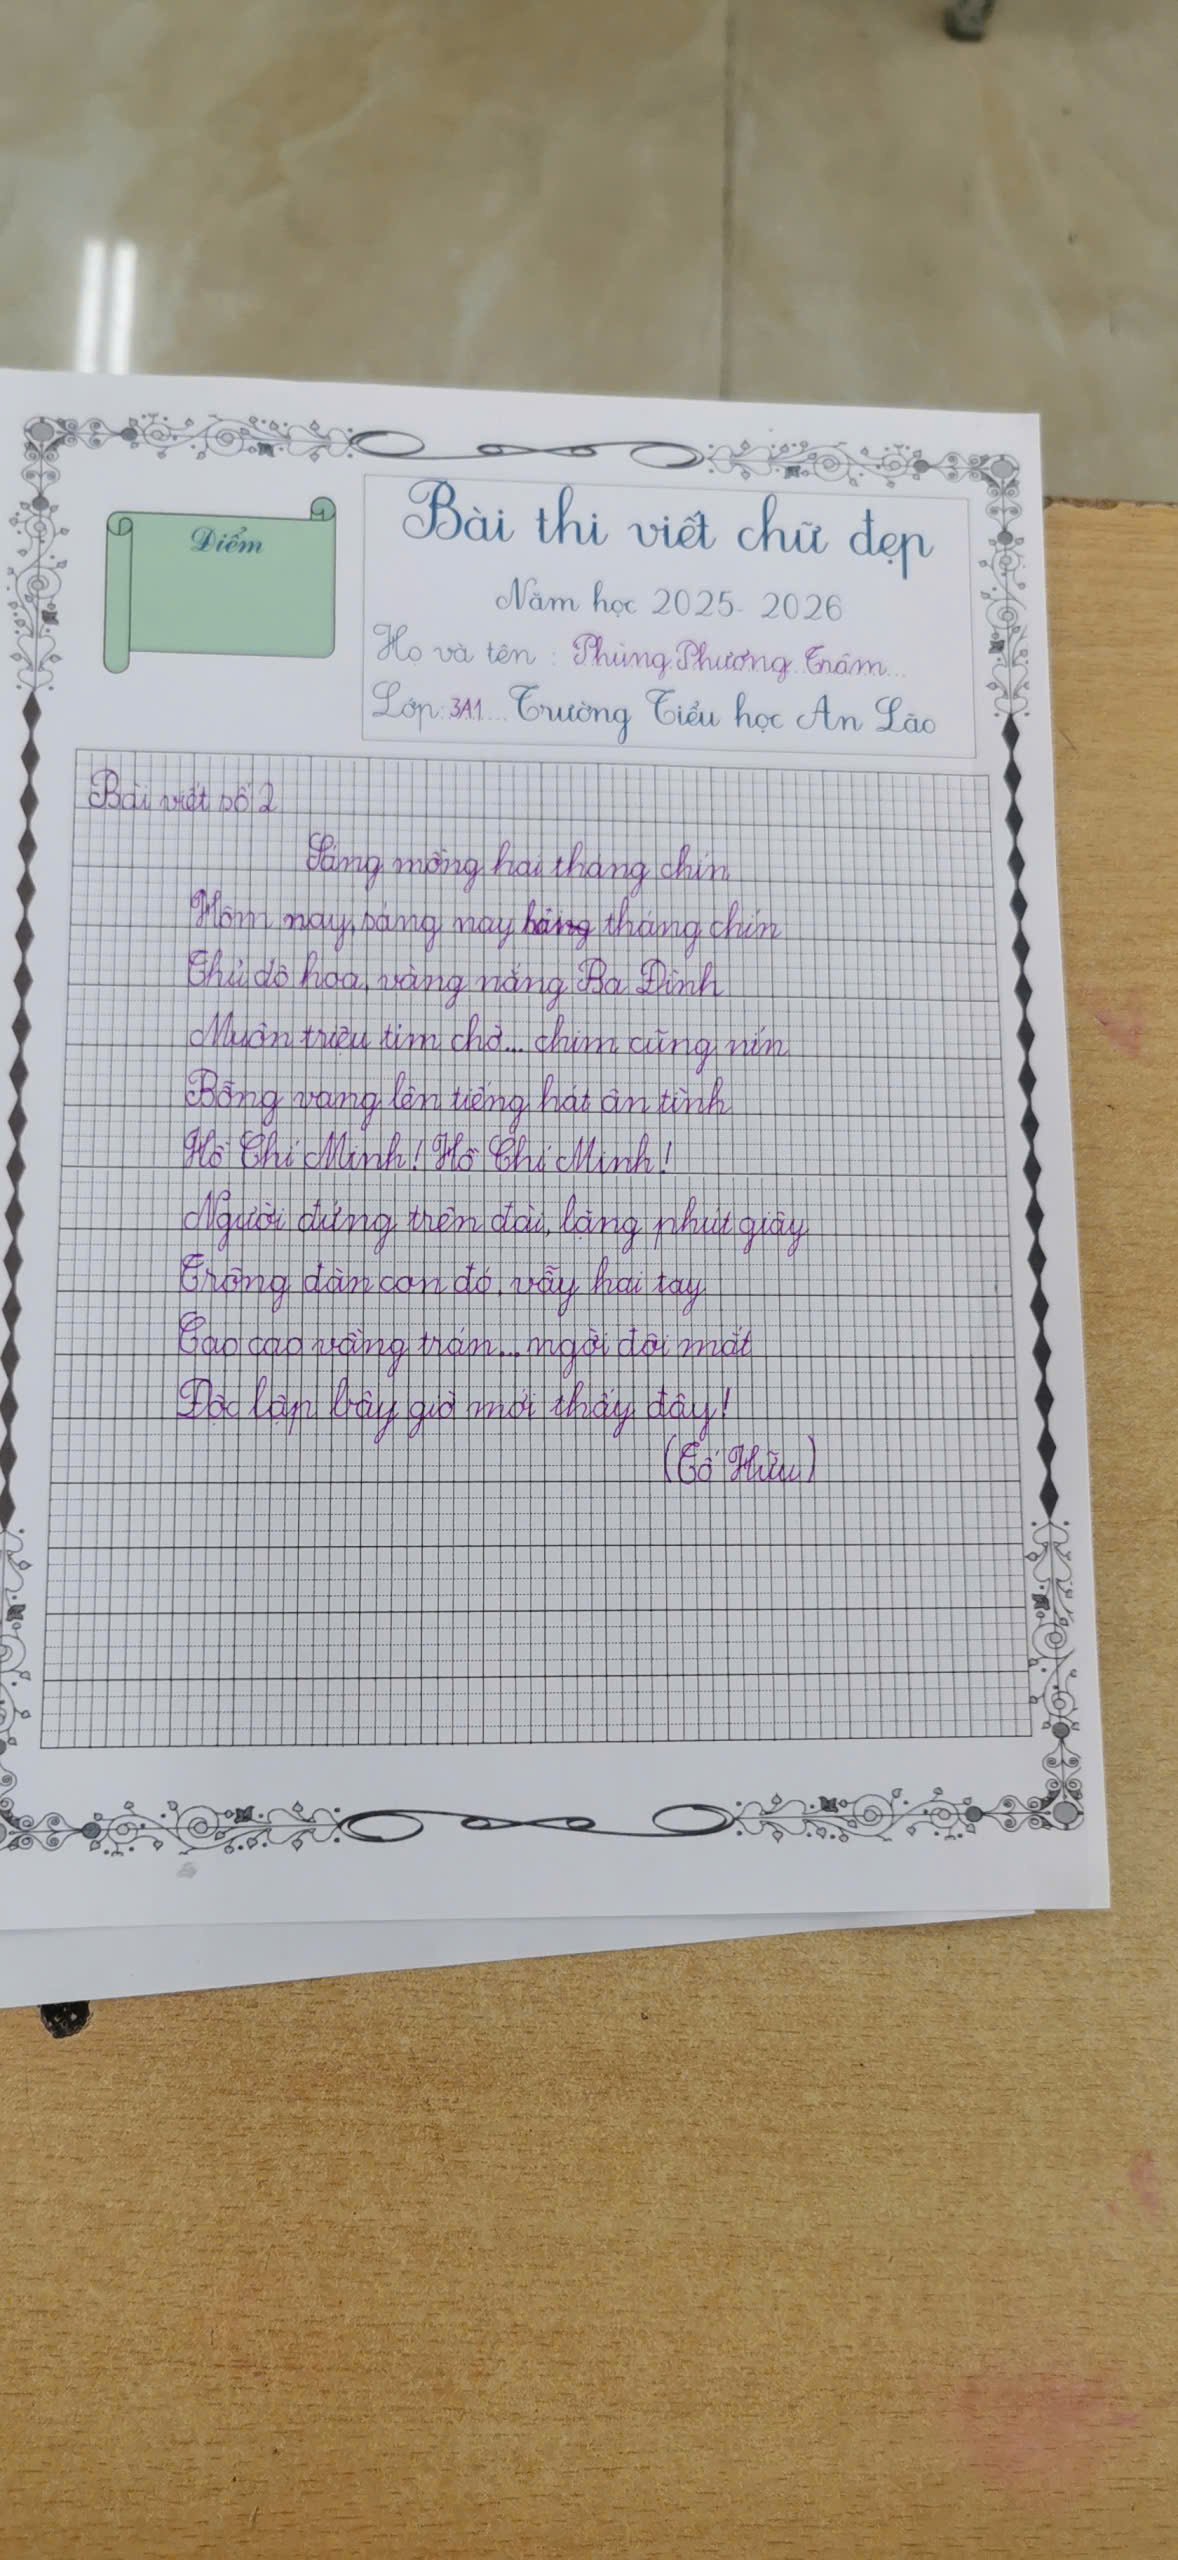 Điểm
Bài thi viết chữ đẹp
Năm học 2025- 2026
Họ và tên : Phùng Phương Trâm...
Lớp: 3A1... Trường Tiểu học An Lão
Bài viết số 2
Sáng mồng hai tháng chín
Hôm nay, sáng nay tháng chín
Thủ đô hoa, vàng nắng Ba Đình
Muôn triệu tim chờ... chim cũng nín
Bỗng vang lên tiếng hát ân tình
Hồ Chí Minh! Hồ Chí Minh!
Người đứng trên đài, lặng phút giây
Trông đàn con đó, vẫy hai tay
Cao cao vầng trán... ngời đôi mắt
Độc lập bây giờ mới thấy đây!
(Tố Hữu)